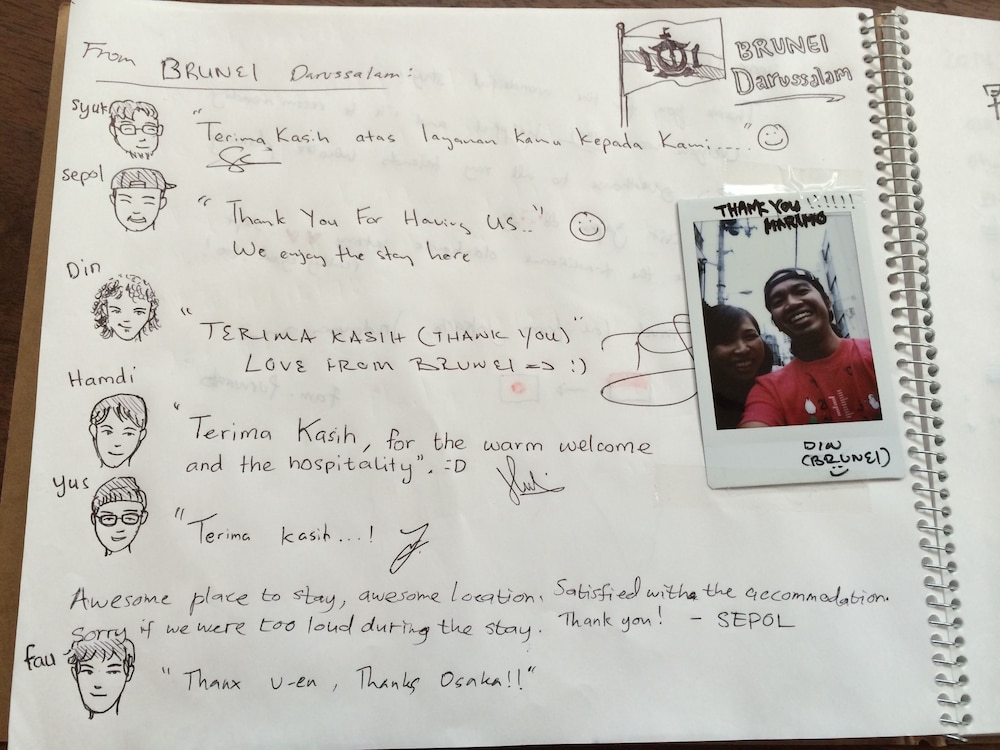 From BRUNEI Darussalam:
BRUNEI
Darussalam
Syuk
"Terima Kasih atas layanan kamu kepada Kami....."
Sepol
"Thank You For Having Us.."
We enjoy the stay here
THANK YOU !!!!!!
MARIMO
Din
"TERIMA KASIH (THANK YOU)"
LOVE FROM BRUNEI => :)
DIN
(BRUNEI)
Hamdi
"Terima Kasih, for the warm welcome
and the hospitality". =D
Yus
"Terima kasih...!
Awesome place to stay, awesome location. Satisfied with the accommodation.
Sorry if we were too loud during the stay. Thank you! - SEPOL
fau
"Thanx u-en, Thanks Osaka!!"